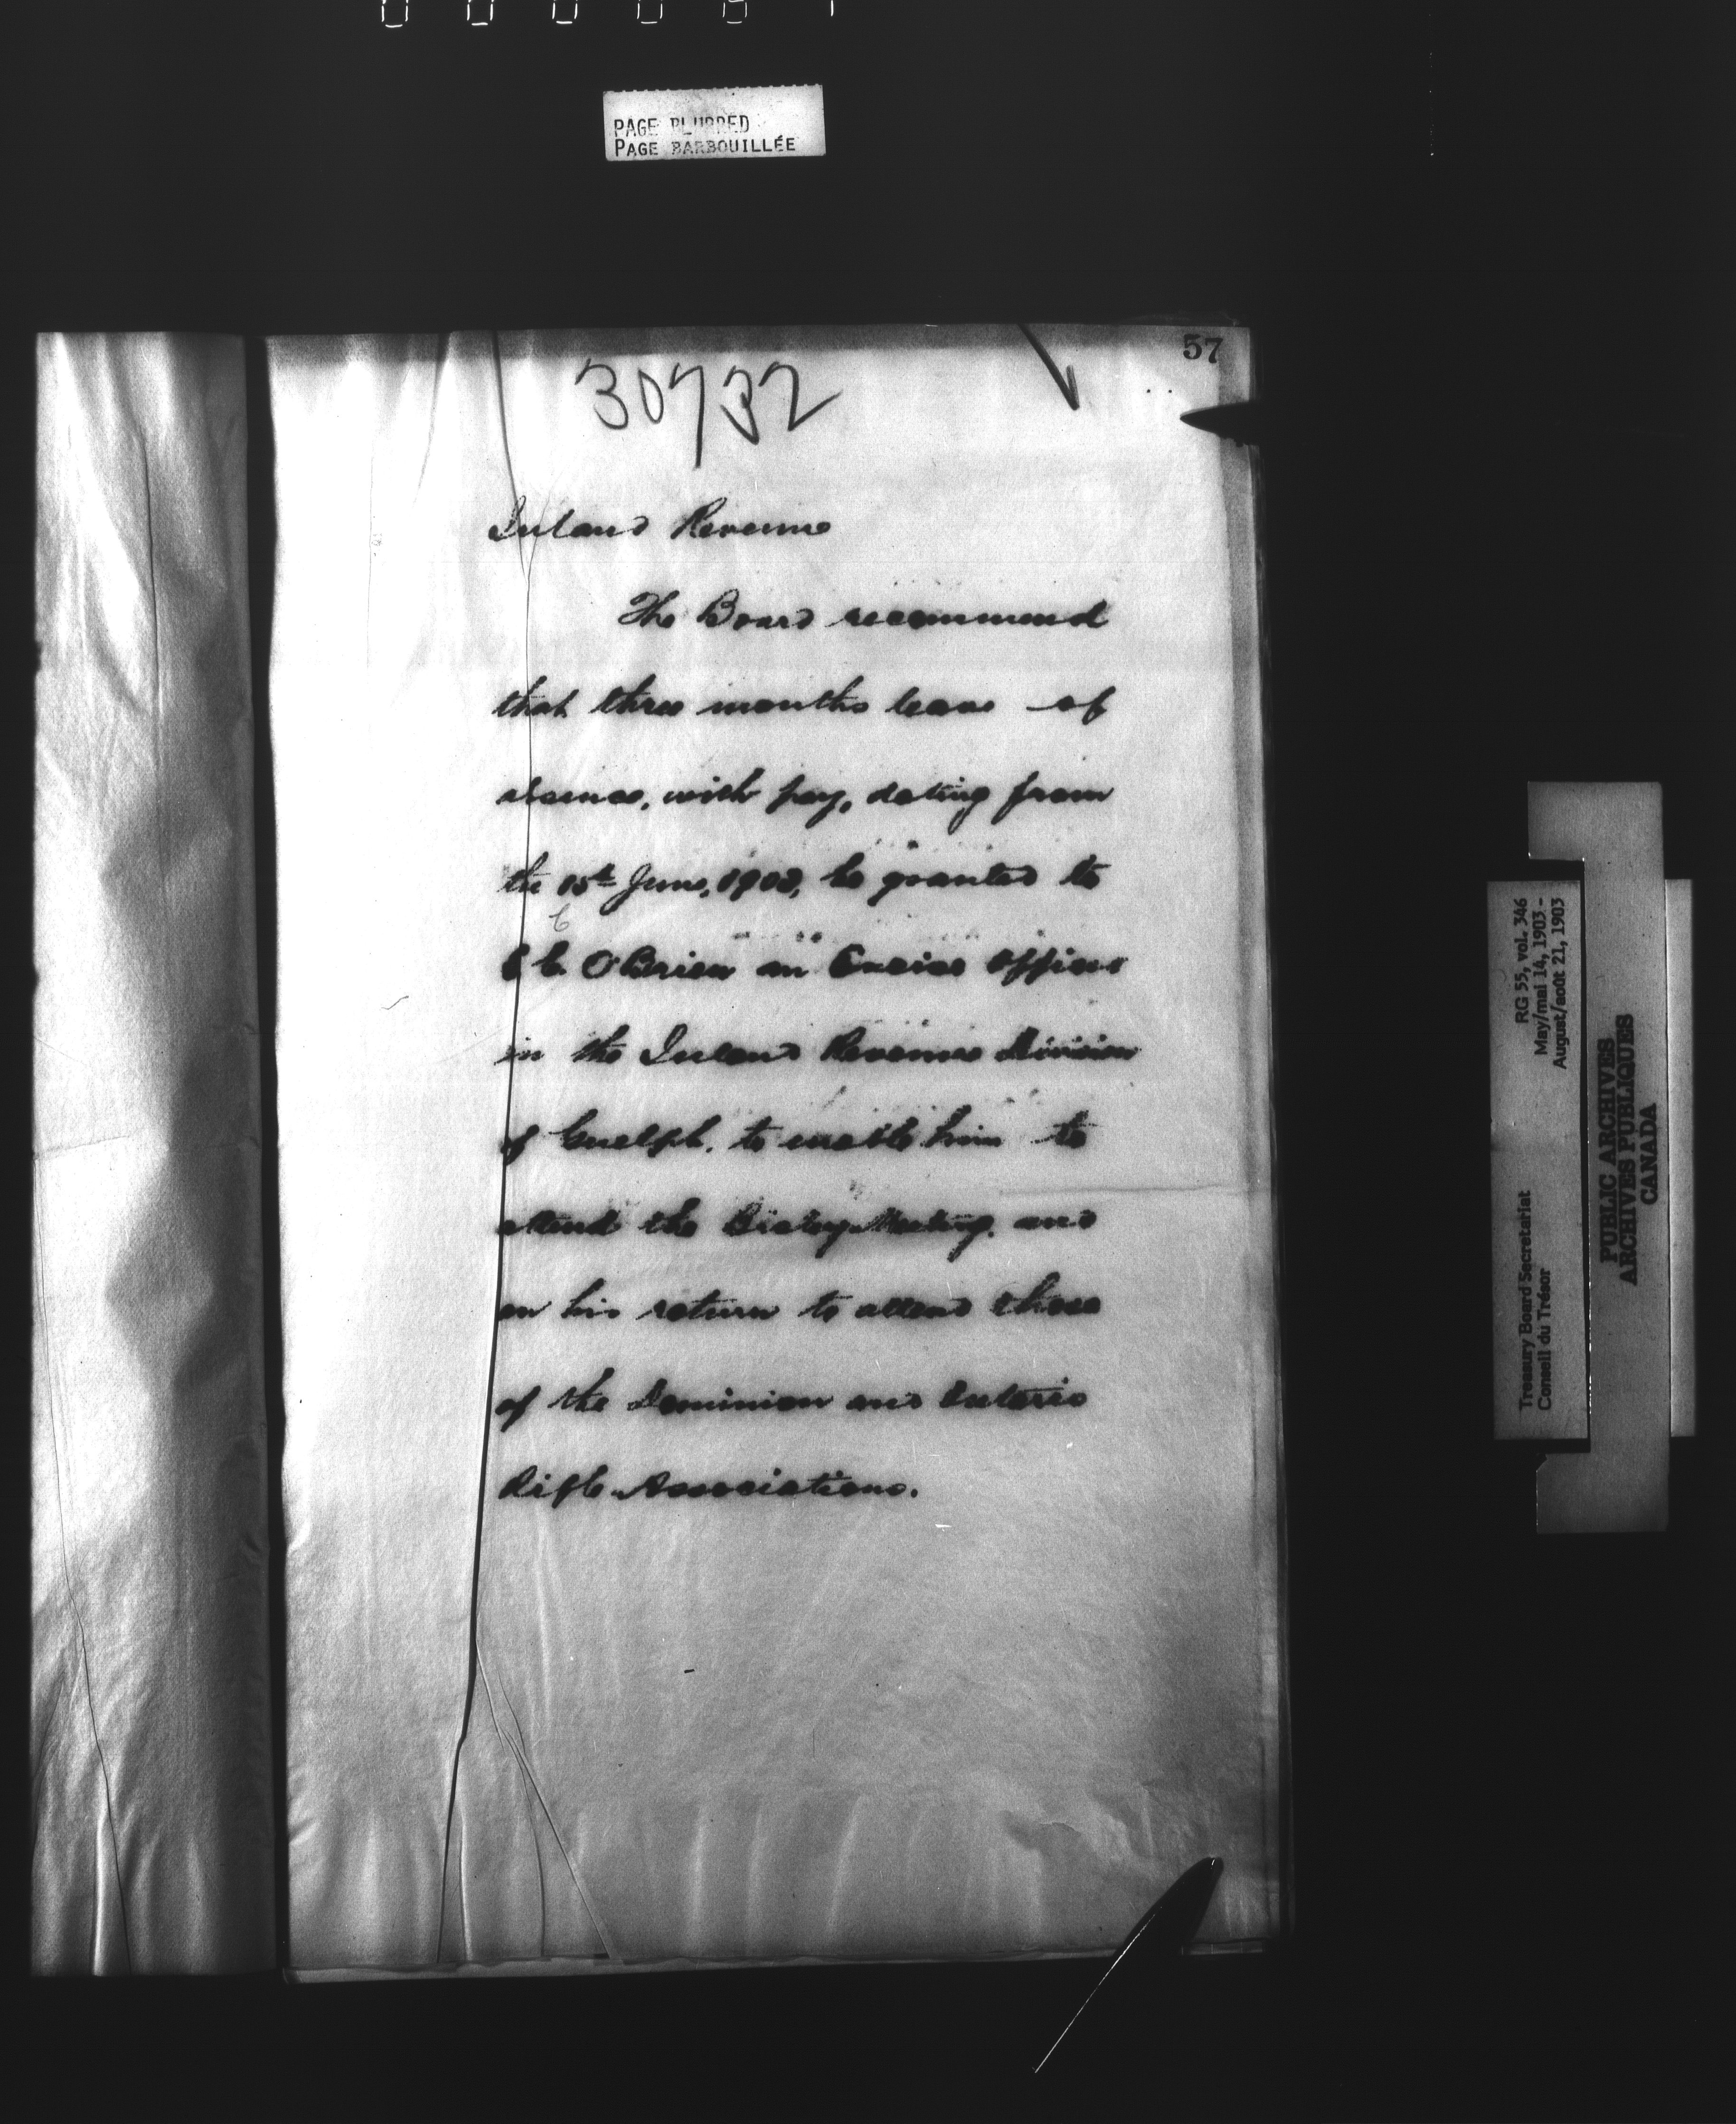 PAGE BLURRED
PAGE BARBOUILLÉE
57
30732
Inland Revenue
The Board recommend
that three months leave of
absence, with pay, dating from
the 15th June, 1903, be granted to
C
O'Brien an Excise Officer
in the Inland Revenue Division
of Guelph, to enable him to
attend the Bisley Meeting, and
on his return to attend those
of the Dominion and Ontario
Rifle Associations.
Treasury Board Secretariat
Conseil du Trésor
RG 55, vol. 346
May/mai 14, 1903 -
August/août 21, 1903
PUBLIC ARCHIVES
ARCHIVES PUBLIQUES
CANADA